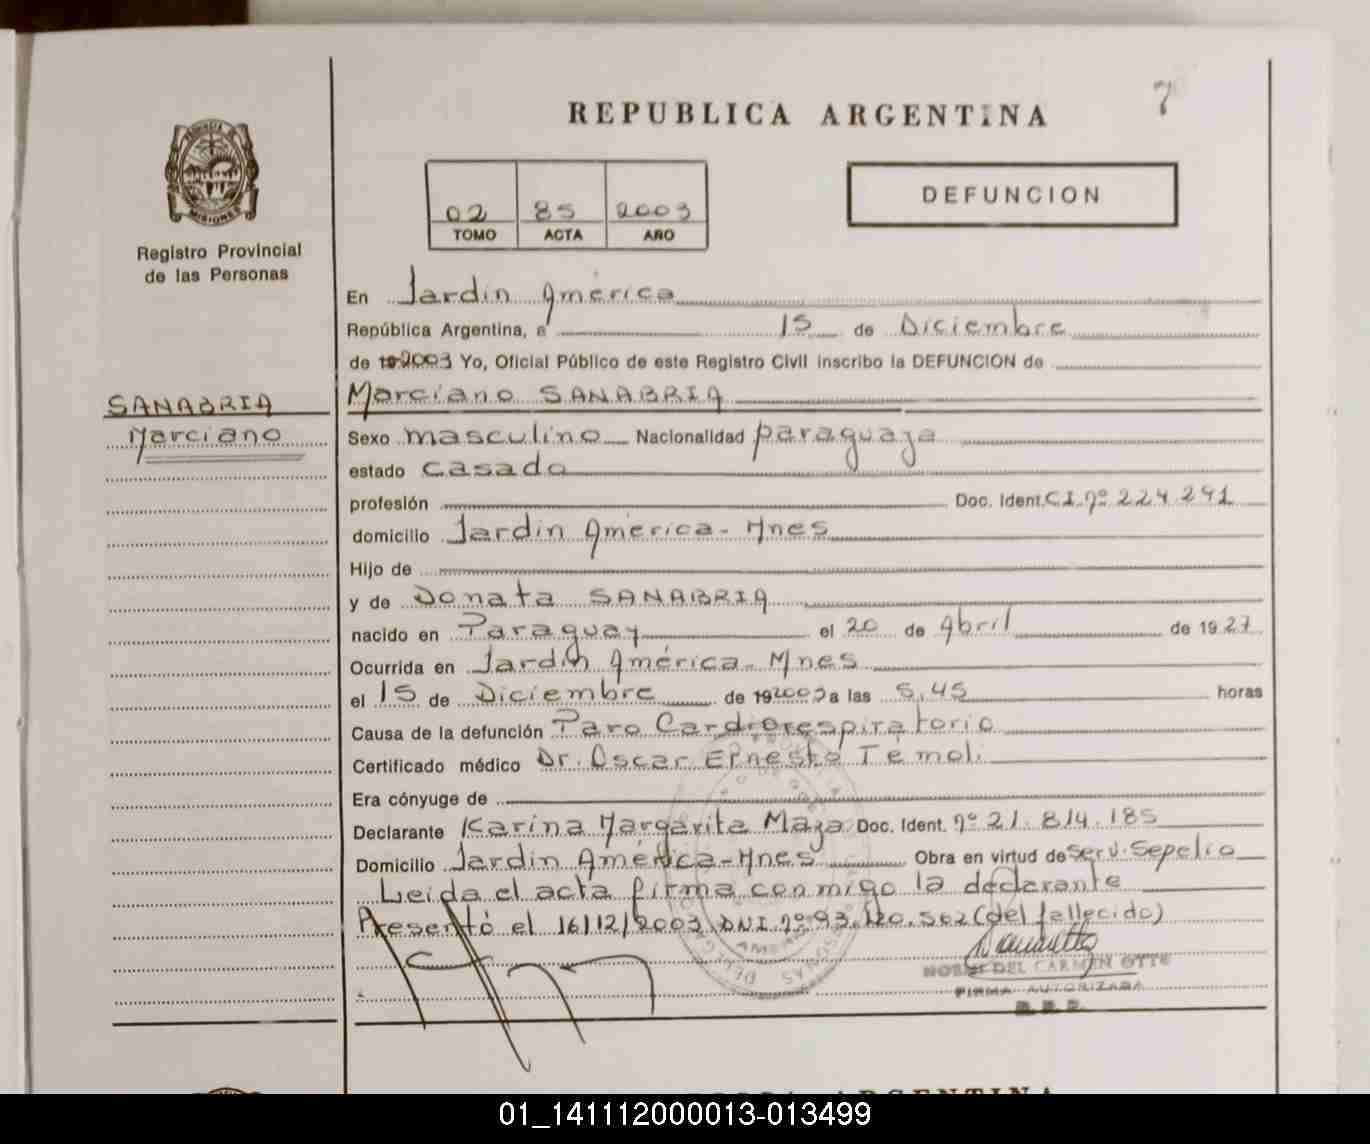 7
REPUBLICA ARGENTINA
DEFUNCION
02 85 2003
TOMO ACTA AÑO
PROVINCIA DE MISIONES
Registro Provincial
de las Personas
SANABRIA
Marciano
En Jardín América
República Argentina, a 15 de Diciembre
de 19 2003 Yo, Oficial Público de este Registro Civil inscribo la DEFUNCION de
Marciano SANABRIA
Sexo masculino Nacionalidad paraguaya
estado casado
profesión Doc. Ident. C.I. nº 224.291
domicilio Jardín América - Mnes
Hijo de
y de Donata SANABRIA
nacido en Paraguay el 20 de Abril de 1927
Ocurrida en Jardín América - Mnes
el 15 de Diciembre de 19 2003 a las 5,45 horas
Causa de la defunción Paro Cardiorespiratorio
Certificado médico Dr. Oscar Ernesto Temoli
Era cónyuge de
Declarante Karina Margarita Maza Doc. Ident. nº 21.814.185
Domicilio Jardín América - Mnes Obra en virtud de Serv. Sepelio
Leida el acta firma conmigo la declarante
Presentó el 16/12/2003 DNI nº 93.120.562 (del fallecido)
DEL CARMEN OTTE
FIRMA AUTORIZADA
ARGENTINA
01_141112000013-013499